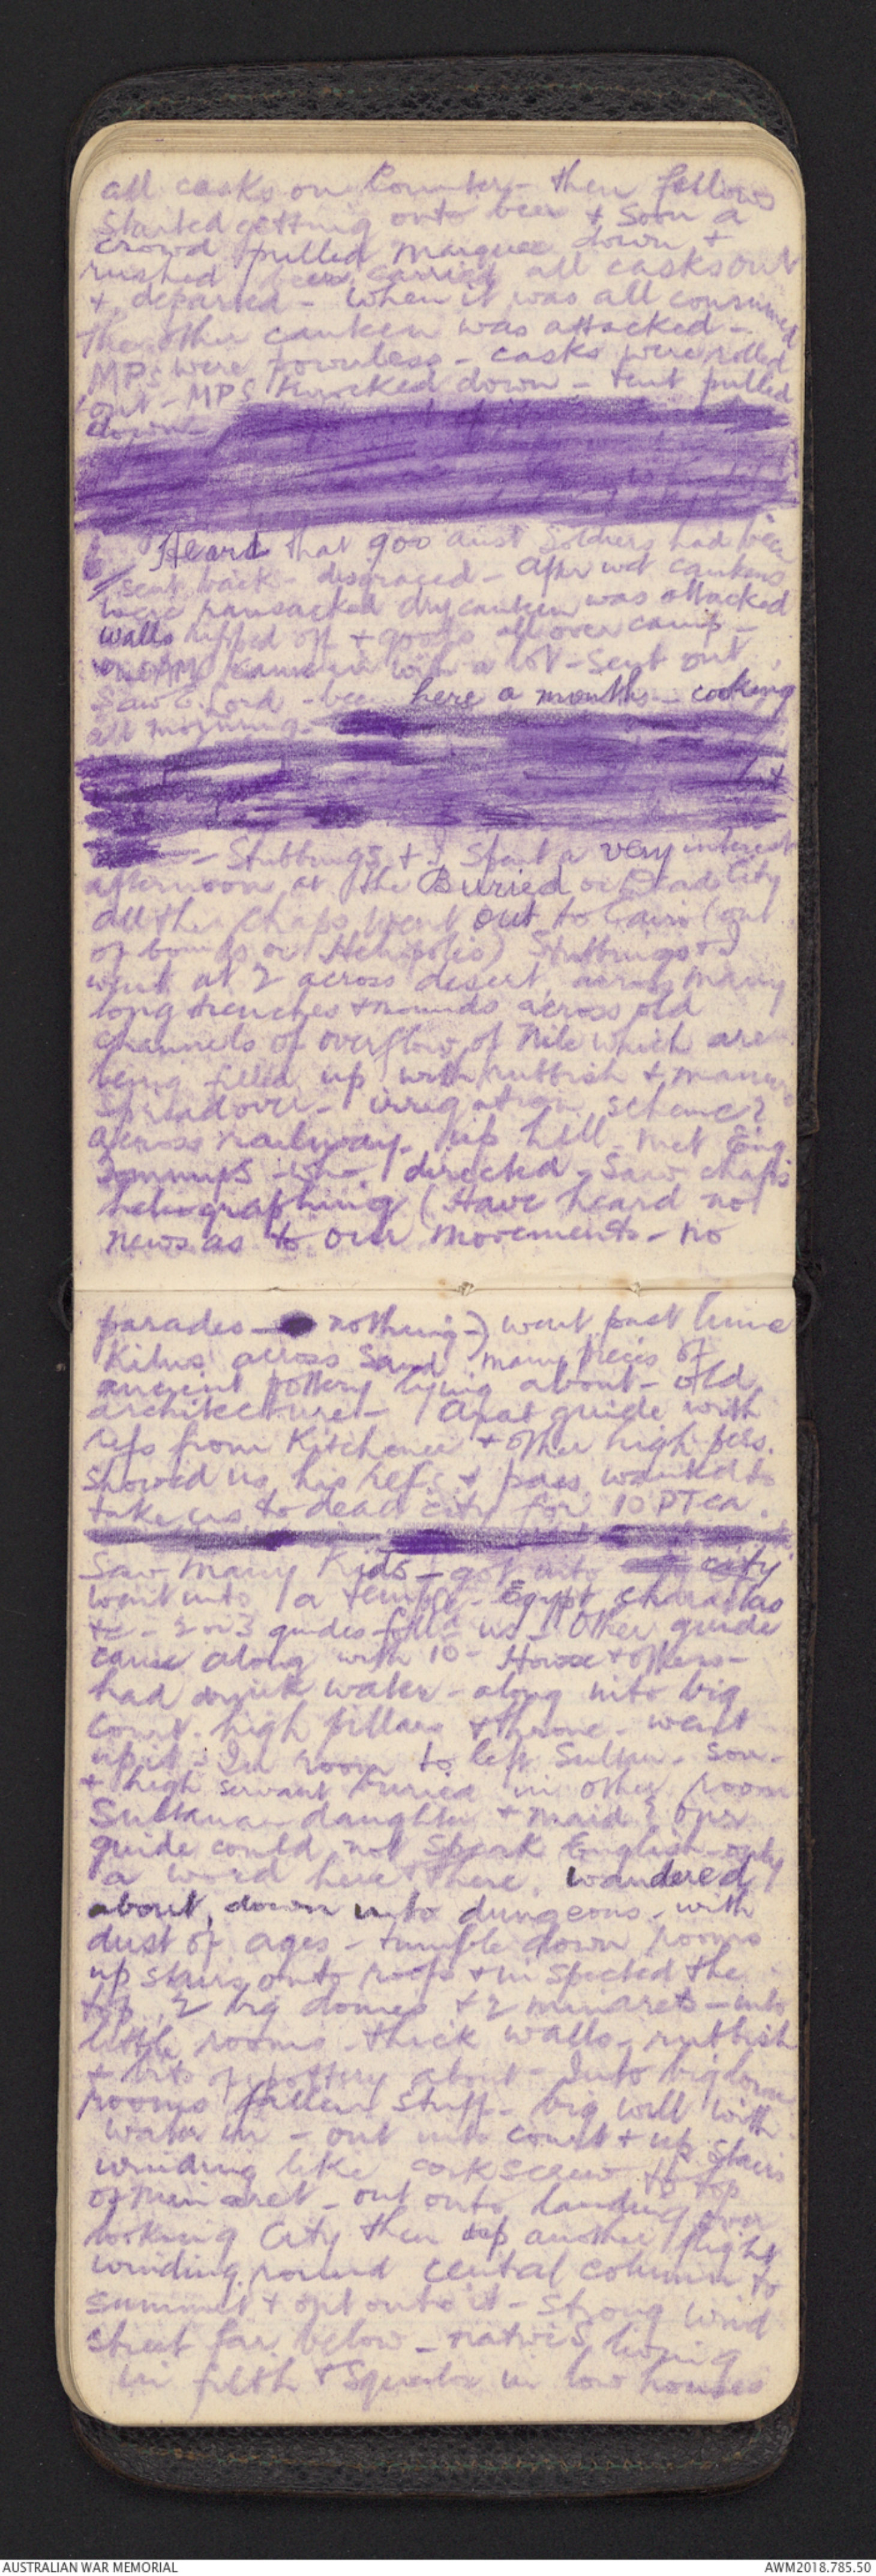 all casks on Counter - then fellows
started getting onto beer & soon a
crowd pulled marquee down &
rushed beer, carried all casks out
& departed - when it was all consumed
the other canteen was attacked -
MPs were powerless - casks were rolled
out - MPS knocked down - tent pulled
down -
Heard that 900 aust soldiers had been
sent back - disgraced - after wet canteens
were ransacked dry canteen was attacked
walls ripped off & goods all over camp -
canteen with a lot - sent out
Saw E. Lord - been here a month - cooking
all morning -
- Stubbings & I spent a very interest
afternoon at the Buried or Dead City
all the chaps went out to Cairo (out
of bounds or Heliopolis) Stubbings & I
went at 2 across desert, across many
long trenches & mounds across old
channels of overflow of Nile which are
being filled up with rubbish & manure
spread over - irrigation scheme?
across railway - up hill - met Eng
Tommys who directed - Saw chaps
heliographing (Have heard no
news as to our movements - no
parades - nothing -) went past lime
Kilns across sand many pieces of
ancient pottery lying about - old
architecture - Arab guide with
refs from Kitchener & other high pers.
showed us his refs & pass wanted to
take us to dead city for 10 PT ea.
Saw many Kids - got into city
went into a temple - Egypt characters
&c - 2 or 3 guides folld us - Other guide
came along with 10 - Howse & others -
had drink water - along into big
court - high pillars & throne - went
up it - In room to left Sultan - son -
& high servant buried in other room
Sultana - daughter & maid? Our
guide could not speak English - only
a word here & there. wandered
about, down into dungeons - with
dust of ages - tumble down rooms
up stairs onto roofs & inspected the
top, 2 big domes & 2 minarets - into
little rooms - thick walls - rubbish
& bits of pottery about - Into big dome
rooms fallen stuff - big well with
water in - out into court & up stairs
winding like corkscrew to top
of minaret - out onto landing over
looking City then up another flight
winding round central column to
summit & opt onto it - strong wind
street far below - natives living
in filth & squalor in low houses
AUSTRALIAN WAR MEMORIAL
AWM2018.785.50